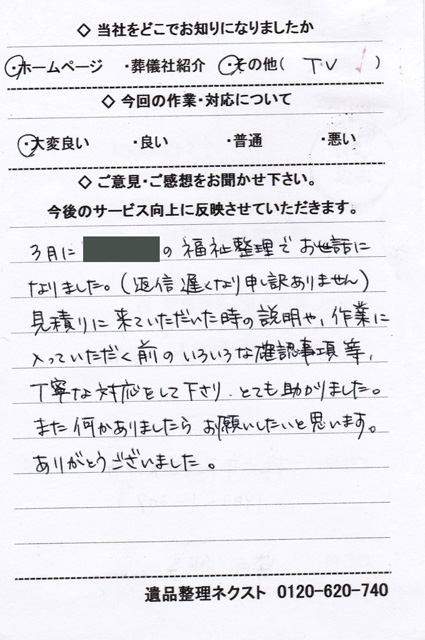 ◇ 当社をどこでお知りになりましたか
・ホームページ ・葬儀社紹介 ・その他( TV )
◇ 今回の作業・対応について
・大変良い ・良い ・普通 ・悪い
◇ ご意見・ご感想をお聞かせ下さい。
今後のサービス向上に反映させていただきます。
3月に の福祉整理でお世話に
なりました。(返信遅くなり申し訳ありません)
見積りに来ていただいた時の説明や、作業に
入っていただく前のいろいろな確認事項等、
丁寧な対応をして下さり、とても助かりました。
また何かありましたらお願いしたいと思います。
ありがとうございました。
遺品整理ネクスト 0120-620-740